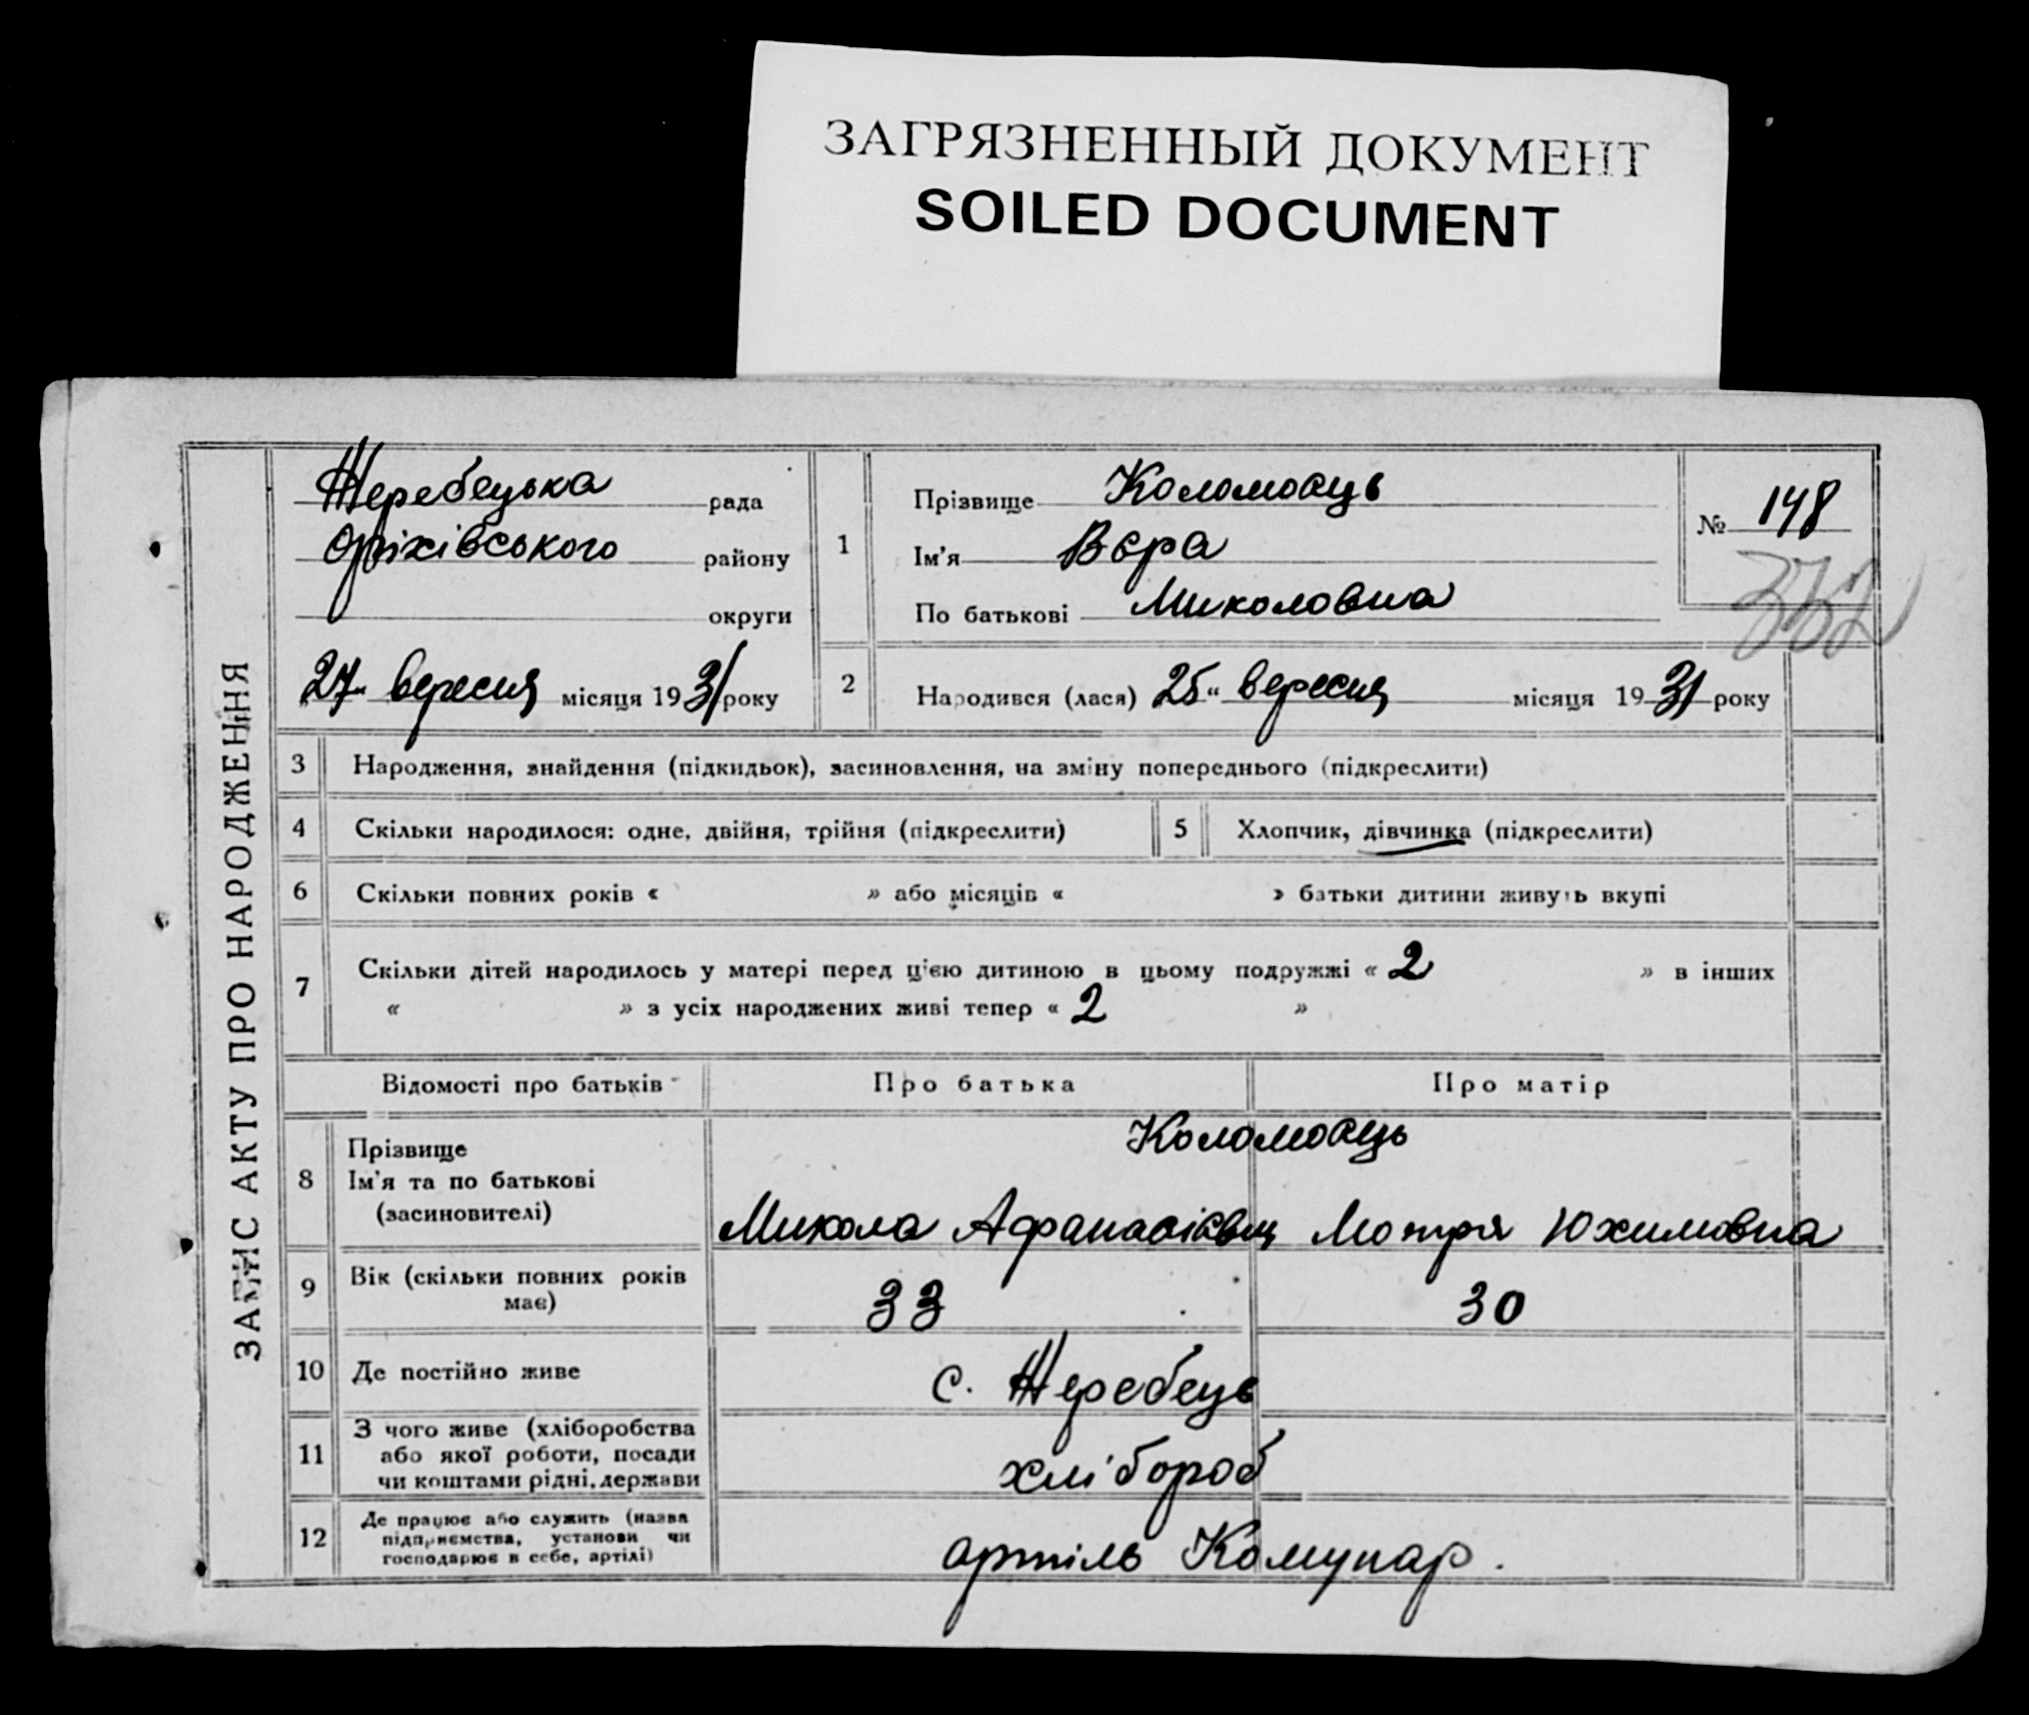 ЗАГРЯЗНЕННЫЙ ДОКУМЕНТ
SOILED DOCUMENT
ЗАПИС АКТУ ПРО НАРОДЖЕННЯ
Жеребецька рада
Оріхівського району
округи
27" вересня місяця 1931 року
1
Прізвище Коломоєць
Ім'я Вєра
По батькові Миколовна
№ 148
2 Народився (лася) 25" вересня місяця 1931 року
3 Народження, знайдення (підкидьок), засиновлення, на зміну попереднього (підкреслити)
4 Скільки народилося: одне, двійня, трійня (підкреслити) 5 Хлопчик, дівчинка (підкреслити)
6 Скільки повних років « » або місяців « » батьки дитини живуть вкупі
7 Скільки дітей народилось у матері перед цією дитиною в цьому подружжі « 2 » в інших
« » з усіх народжених живі тепер « 2 »
Відомості про батьків Про батька Про матір
8 Прізвище Коломоєць
Ім'я та по батькові
(засиновителі) Микола Афанасієвич Мотря Юхимовна
9 Вік (скільки повних років
має) 33 30
10 Де постійно живе с. Жеребець
11 З чого живе (хліборобства
або якої роботи, посади
чи коштами рідні, держави хлібороб
12 Де працює або служить (назва
підприємства, установи чи
господарює в себе, артілі) артіль Комунар.